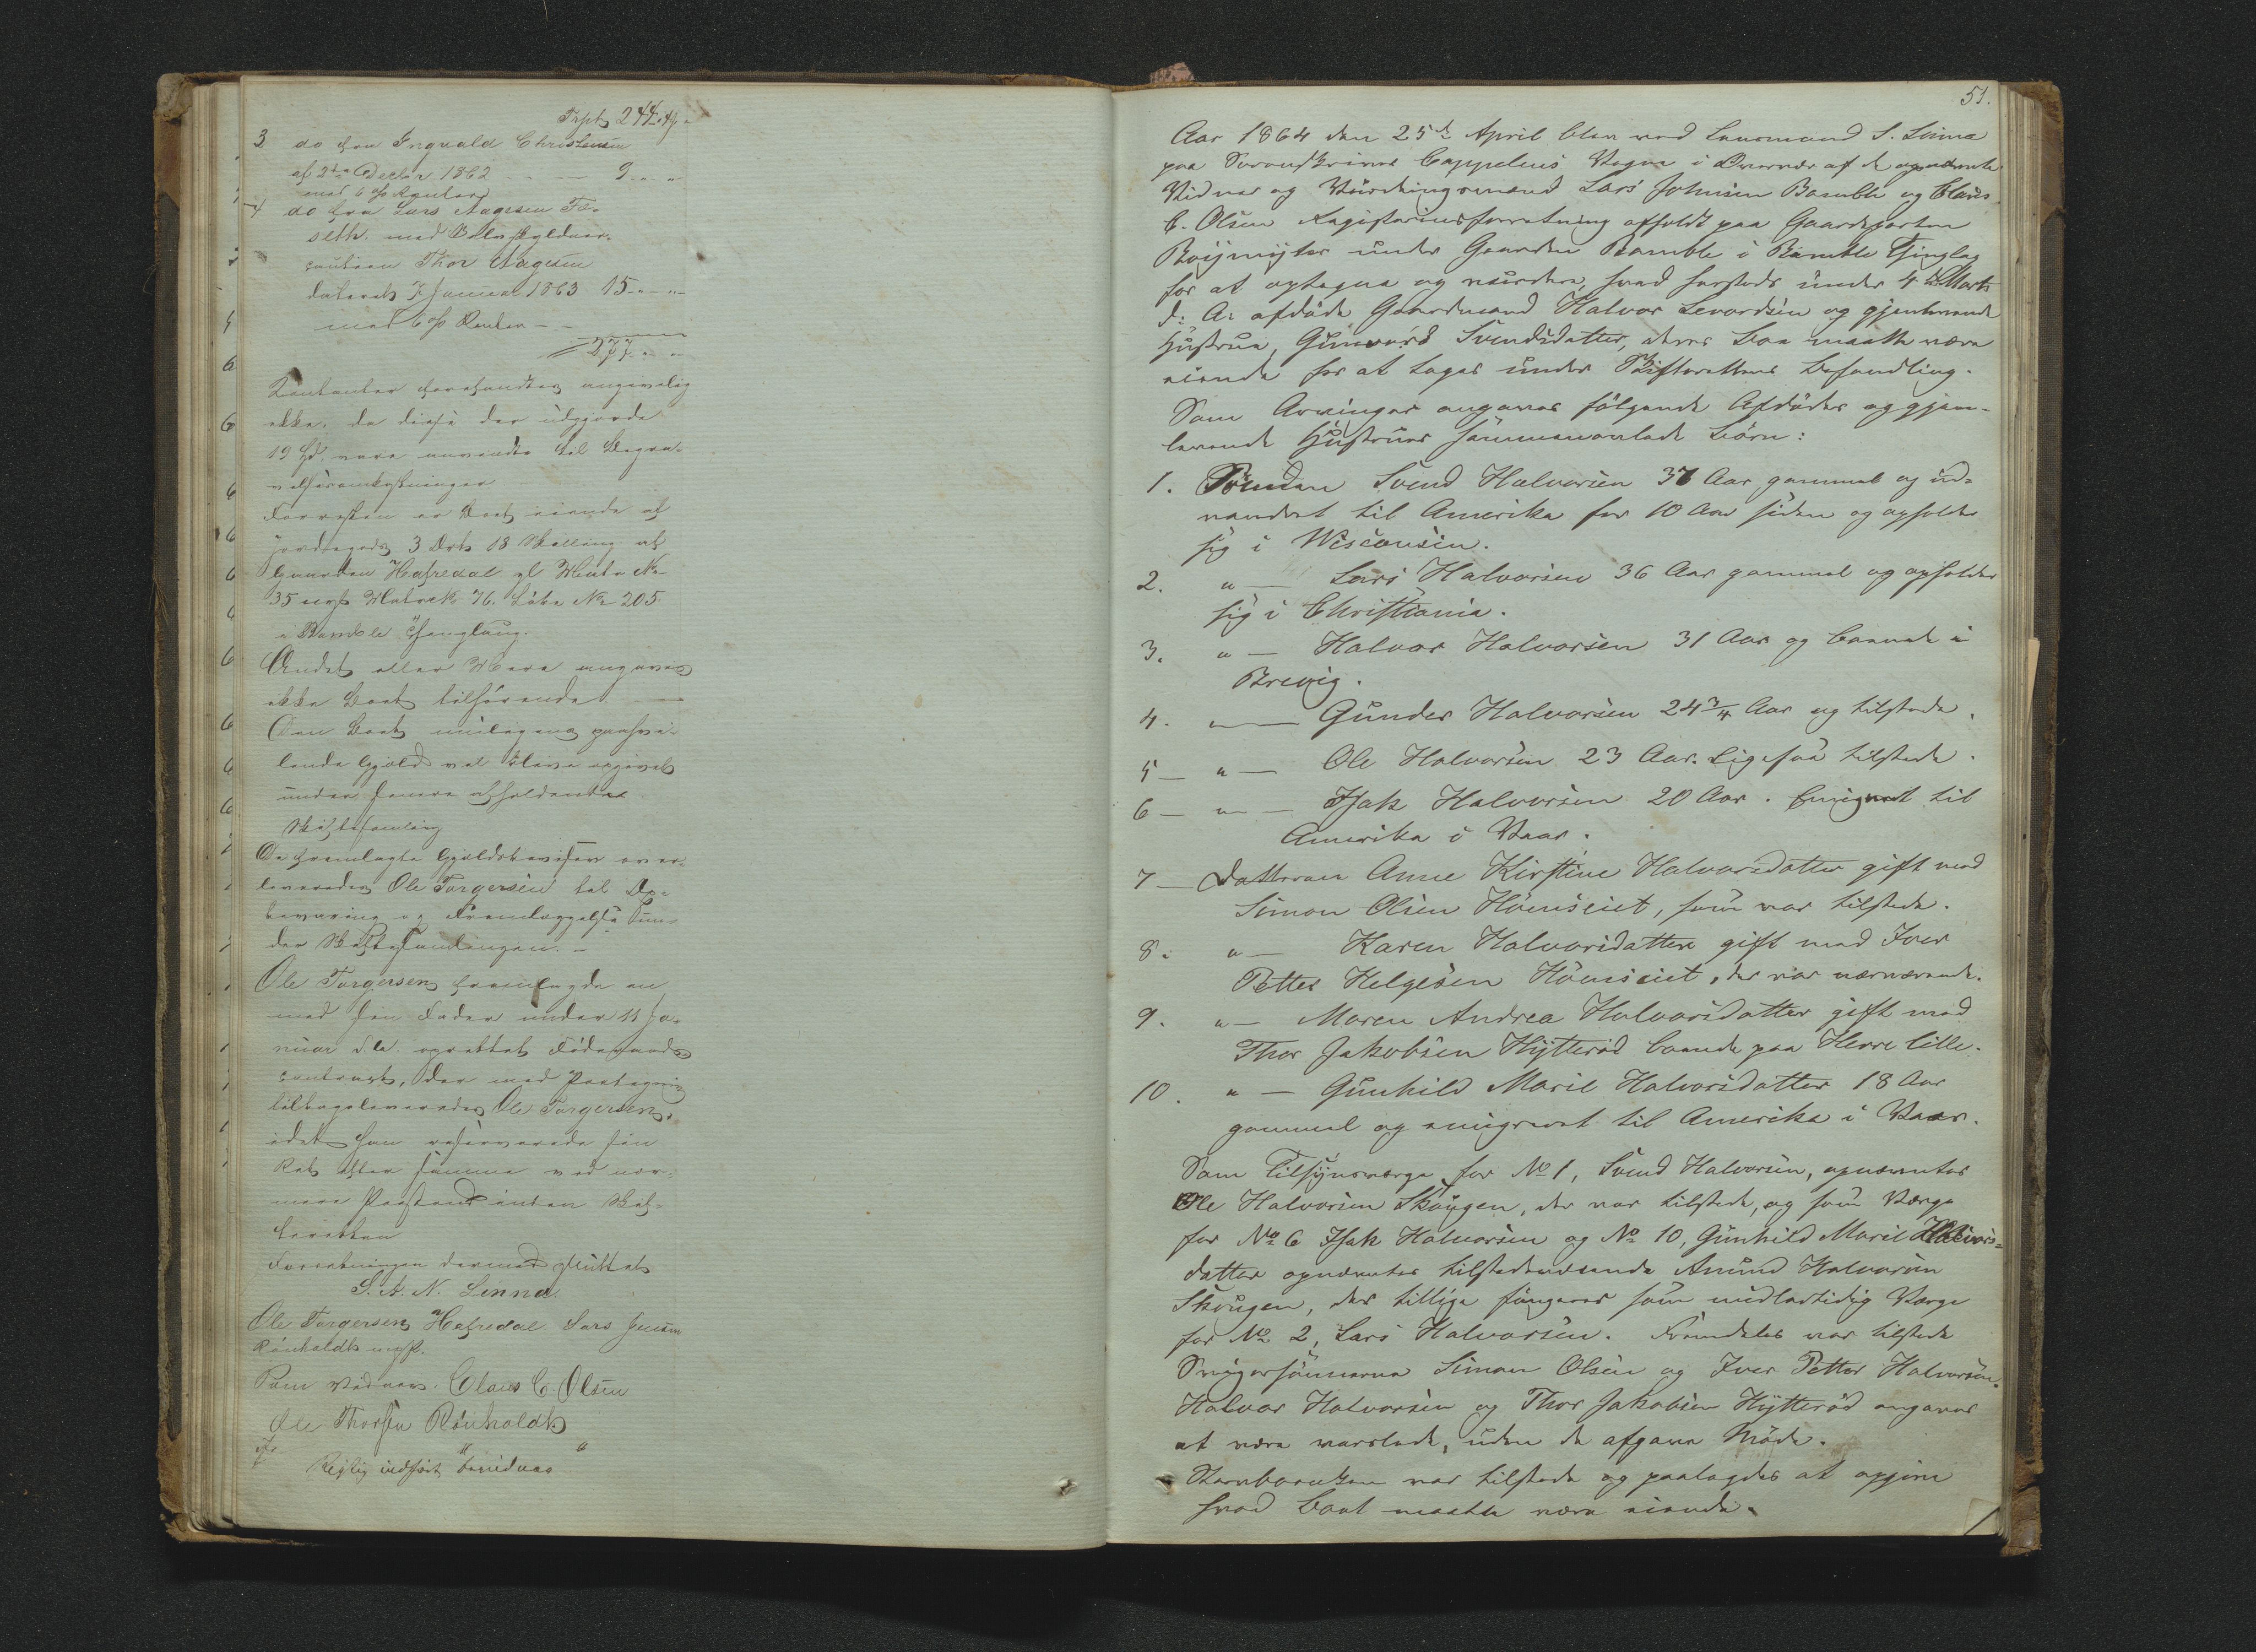 Trpt 244
3 do fra Ingvald Christensen
af 2den Decbr. 1862 9 " "
med 6 % Renter
4 do fra Lars Aagesen
seth. med Selvskyldner-
cautison Thor Aagesen
dateret 7 Januar 1863 15 " "
med 6 % Renter
277 " "
Contanter forefandtes angivelig
ikke, da disse der udgjorde
19 Spd. vare anvendte til Begra-
velsesomkostninger
Forresten er Boet eiende af
Jordegods 3 Ort 18 Skilling af
Gaarden Hafredal gl Matr No
35 nyt Matrok 76. Løbe No 205.
i Bamble Thinglaug.
Andet eller Mere angaves
ikke Boet tilhørende
Den Boet muligens paahvi-
lende Gjæld vil blive opgivet
under senere afholdende
Skiftesamling
De fremlagte Gjældsbeviser over-
leveredes Ole Torgersen til Be-
bevaring og Fremlæggelse un-
der Skiftesamlingen.
Ole Torgersen fremlagde en
med sin Fader under 11 Ja-
nuar d.A. oprettet Føderaads
contract, der med Paategning
tilbageleveredes Ole Torgersen,
idet han reserverede sin
Ret efter samme ved nær-
mere Paastand inden Skif-
teretten
Forretningen dermed sluttet
S. A. N. Linna
Ole Torgersen Hafredal Lars Jensen
Rønholdt
Som Vidner. Claus C. Olsen
Ole Thorsen Rønholdt
Rigtig indført bevidnes
51.
Aar 1864 den 25de April blev ved Lensmand S. Linna
paa Sorenskriver Cappelens Vegne i Overvær af de opnævnte
Vidner og Vurderingsmænd Lars Johnsen Bamble og Claus
C. Olsen Registreringsforretning afholdt paa Gaardparten
under Gaarden Bamble i Bamble Thinglag
for at optegne og vurdere, hvad sammesteds under 4de Marts
d: A: afdøde Gaardmand Halvor Levordsen og gjenlevende
Hustrue, Gunvord Svendsdatter, deres Boe maatte være
eiende for at tages under Skifterettens Behandling.
Som Arvinger angaves følgende Afdødes og gjen-
levende Hustrues sammenavlede Børn:
1. Sønnen Svend Halvorsen 37 Aar gammel og ud-
vandret til Amerika for 10 Aar siden og opholder
sig i Wisconsin.
2. " — Lars Halvorsen 36 Aar gammel og opholder
sig i Christiania.
3. " — Halvor Halvorsen 31 Aar og boende i
Brevig.
4. " — Gunder Halvorsen 24 3/4 Aar og tilstede.
5 — " — Ole Halvorsen 23 Aar. Ligesaa tilstede.
6 — " — Isak Halvorsen 20 Aar. Emigreret til
Amerika i Vaar.
7 — Datteren Anne Kirstine Halvorsdatter gift med
Simon Olsen Hounseiet, som var tilstede.
8. " — Karen Halvorsdatter gift med Iver
Petter Helgesen Hounseiet, der var nærværende.
9. " — Maren Andrea Halvorsdatter gift med
Thor Jakobsen Hytterød boende paa Herre lille.
10. " — Gunhild Marie Halvorsdatter 18 Aar
gammel og emigreret til Amerika i Vaar.
Som Tilsynsværge for No 1, Svend Halvorsen, opnævntes
Ole Halvorsen Skougen, der var tilstede, og som Værge
for No 6 Isak Halvorsen og No 10, Gunhild Marie Halvors-
datter opnævntes tilstedeværende Amund Halvorsen
Skougen, der tillige fungerer som midlertidig Værge
for No 2, Lars Halvorsen. Fremdeles var tilstede
Svigersønnerne Simon Olsen og Iver Petter Halvorsen.
Halvor Halvorsen og Thor Jakobsen Hytterød angaves
at være varslede, uden de afgave Møde.
Stervboenken var tilstede og paalagdes at opgive
hvad Boet maatte være eiende.